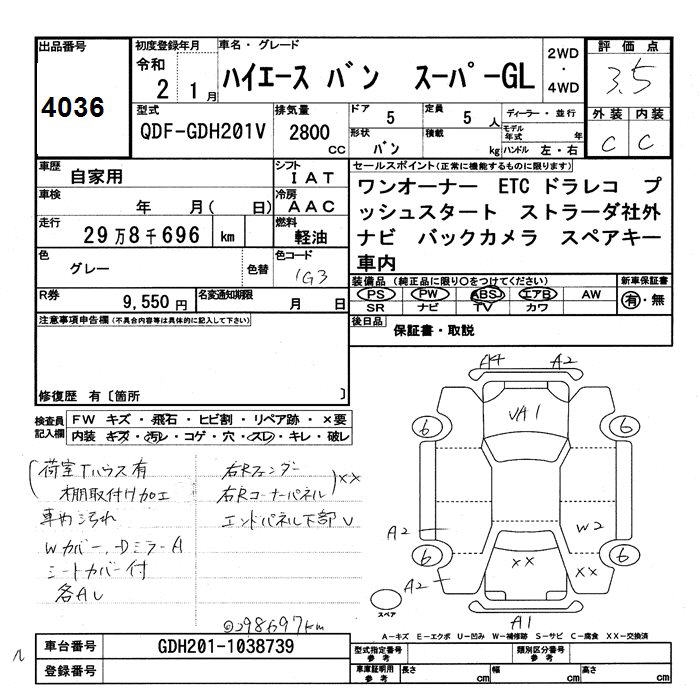 出品番号
4036
初度登録年月
令和
2 1月
車名・グレード
ハイエース バン スーパーGL
2WD
・
4WD
評価点
3.5
外装 内装
C C
型式
QDF-GDH201V
排気量
2800
CC
ドア 5
定員 5 人
ディーラー・並行
モデル年式 年
形状 バン
積載 kg
ハンドル 左・右
車歴
自家用
シフト
IAT
車検
年 月( 日)
冷房
AAC
走行
29万8千696 km
燃料
軽油
色
グレー
色替
色コード
1G3
R券
9,550円
名変通知期限
月 日
セールスポイント(正常に機能するものに限ります)
ワンオーナー ETC ドラレコ プ
ッシュスタート ストラーダ社外
ナビ バックカメラ スペアキー
車内
装備品 (純正品に限り○をつけてください)
新車保証書
PS PW ABS エアB AW
有・無
SR ナビ TV カワ
後日品
保証書・取説
注意事項申告欄(不具合内容等は具体的に記入して下さい)
修復歴 有〔箇所 〕
検査員
記入欄
FW キズ・飛石・ヒビ割・リペア跡・×要
内装 キズ・汚レ・コゲ・穴・スレ・キレ・破レ
荷室Tハウス有
棚取付け加工
車内汚れ
Wカバー、Dミラー A
シートカバー付
各AU
右Rフェンダー
右Rコーナーパネル
××
エンドパネル下部 U
◎298697km
A4 A2
VA1
6 6
A2 W2
6 6
×× ××
A2
スペア
A1
A-キズ E-エクボ U-凹み W-補修跡 S-サビ C-腐食 XX-交換済
車台番号
GDH201-1038739
登録番号
型式指定番号
参考
類別区分番号
参考
車庫証明用
参考
長さ cm
幅 cm
高さ cm